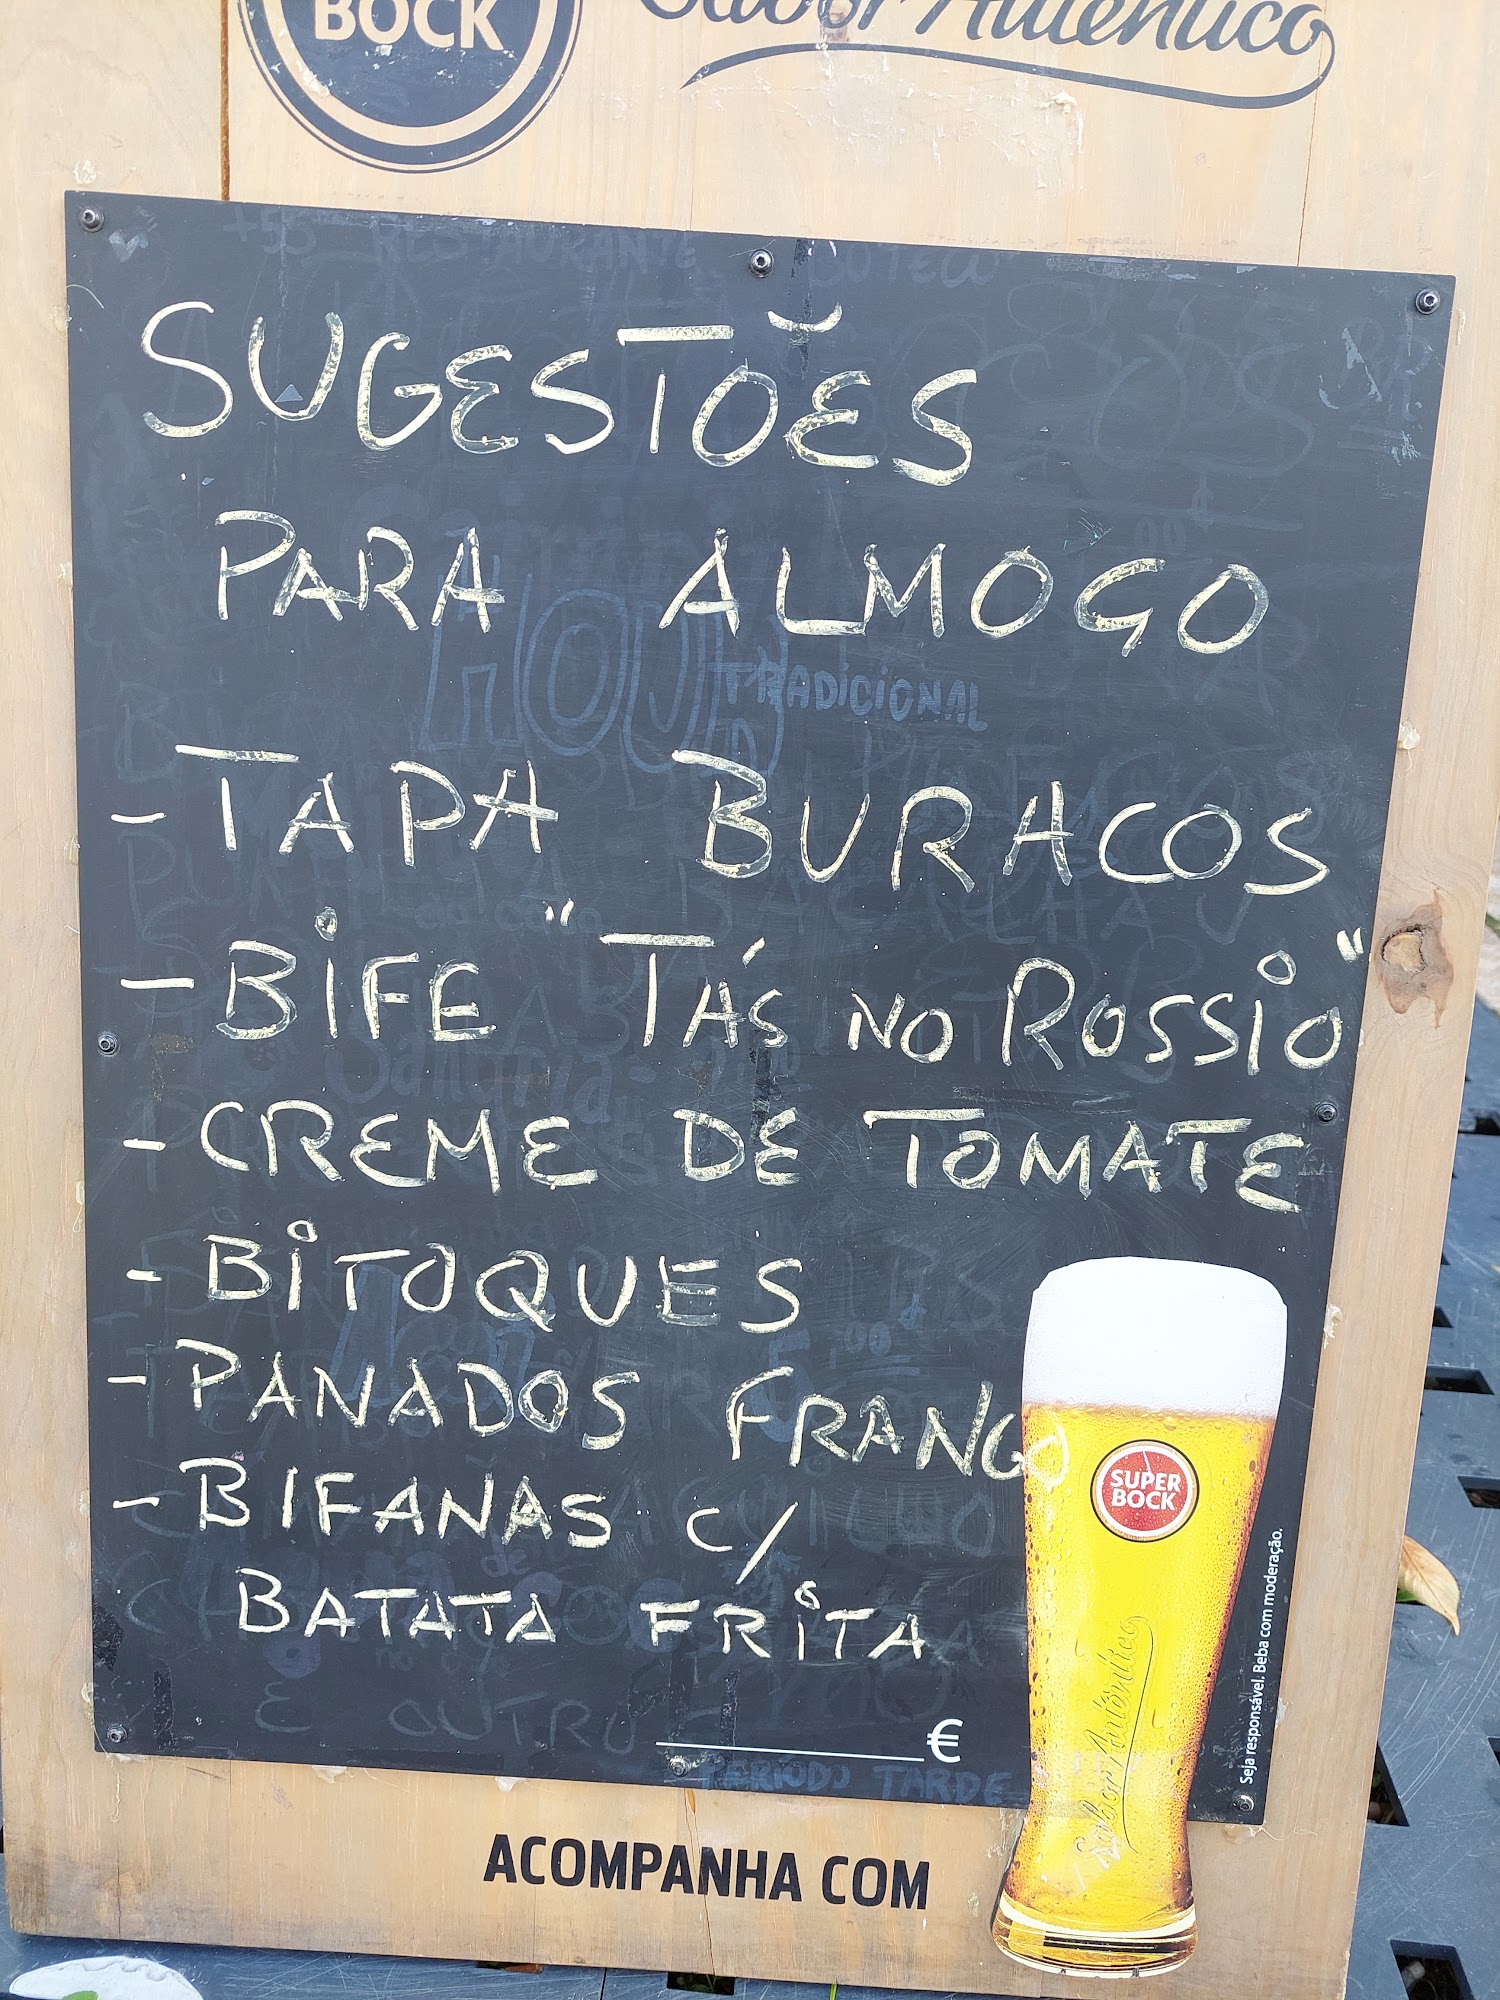 BOCK
Sabor Autêntico
SUGESTÕES
PARA ALMOGO
- TAPA BURACOS
- BIFE "TÁS NO ROSSIO"
- CREME DE TOMATE
- BITOQUES
- PANADOS FRANGO
- BIFANAS C/
BATATA FRITA
€
SUPER
BOCK
Sabor Autêntico
Seja responsável. Beba com moderação.
ACOMPANHA COM
+55 RESTAURANTE BOTECO
TRADICIONAL
E OUTRO
PERIODO TARDE